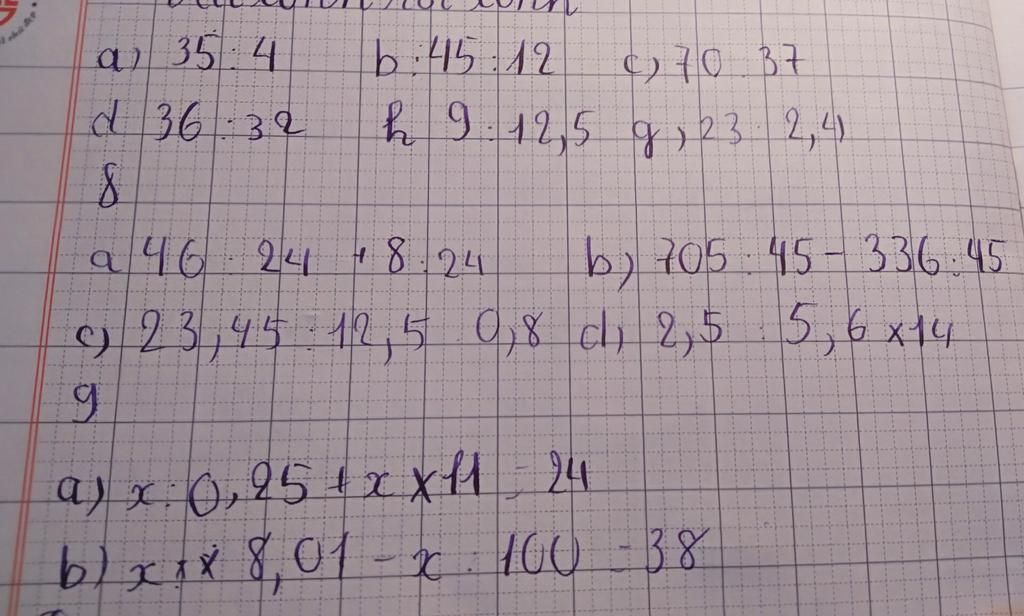 a) 35 : 4 b : 45 : 12 c, 70 : 37
d 36 : 32 h 9 : 12,5 g, 23 : 2,4
8
a 46 : 24 + 8 : 24 b) 705 : 45 - 336 : 45
c) 23,45 : 12,5 : 0,8 d, 2,5 : 5,6 x 14
9
a) x : 0,25 + x x 11 = 24
b) x x 8,01 - x : 100 = 38